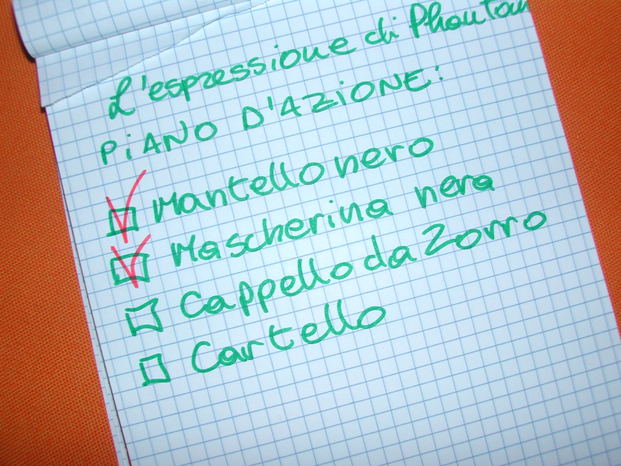 L'espressione di Phantom
PiANO D'AZiONE:
Mantello nero
Mascherina nera
Cappello da Zorro
Cartello